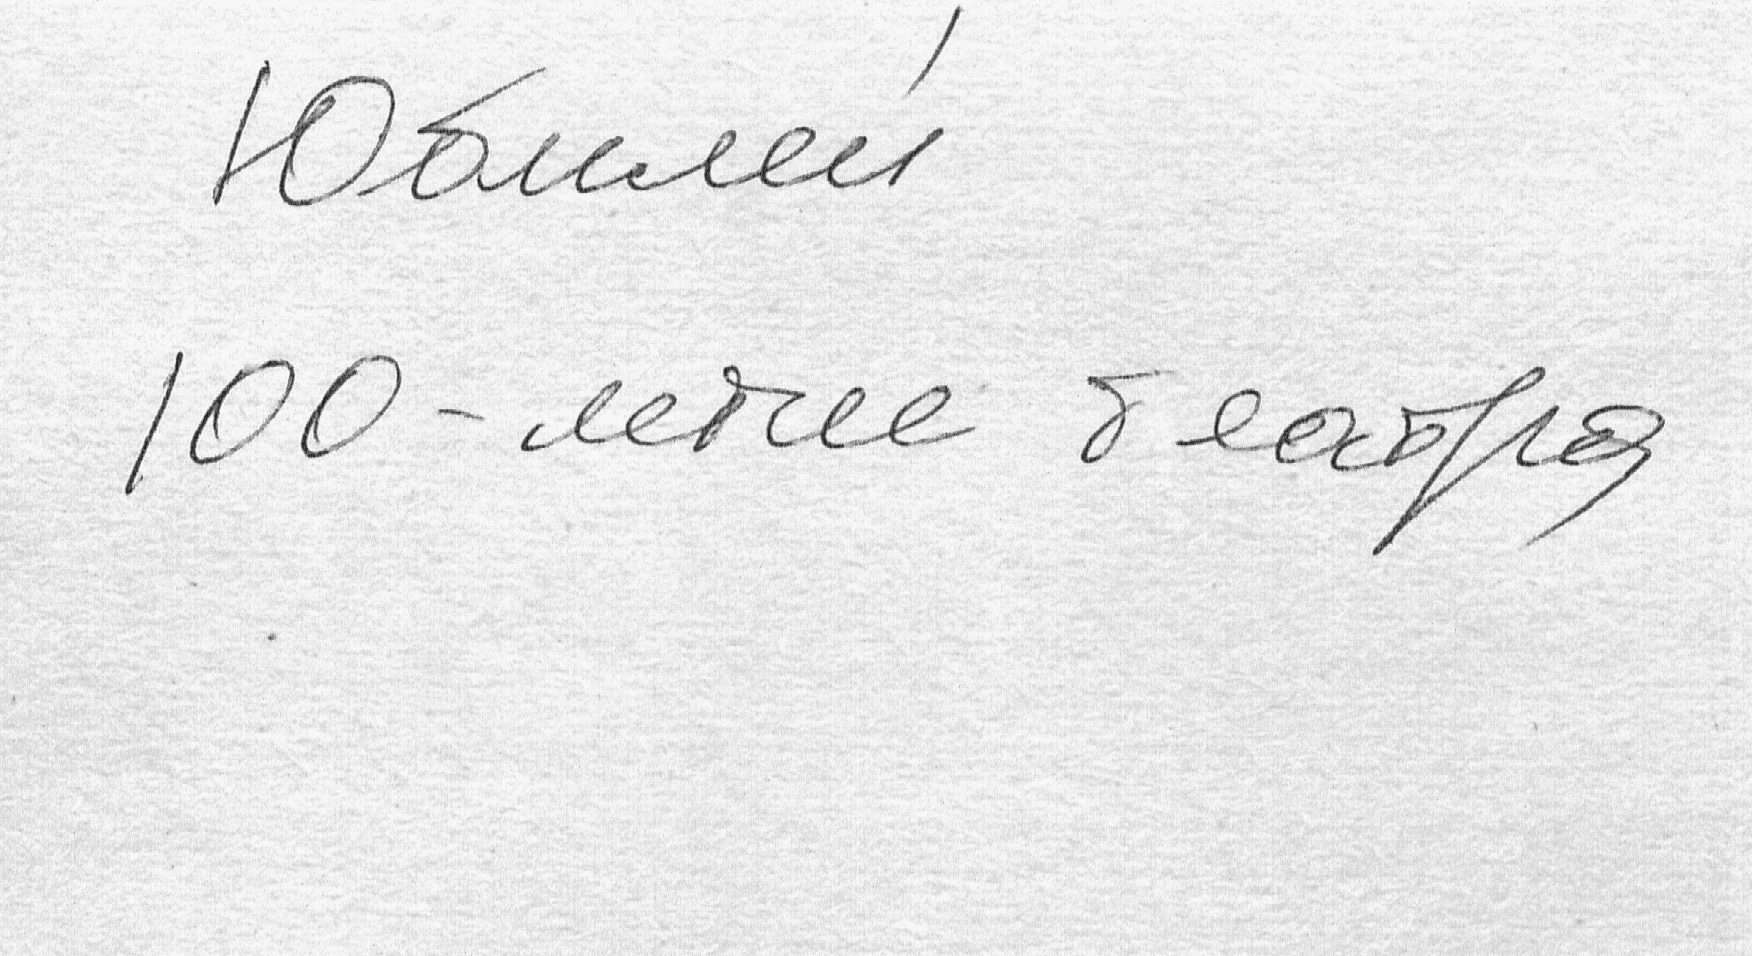 Юбилей
100-летие театра